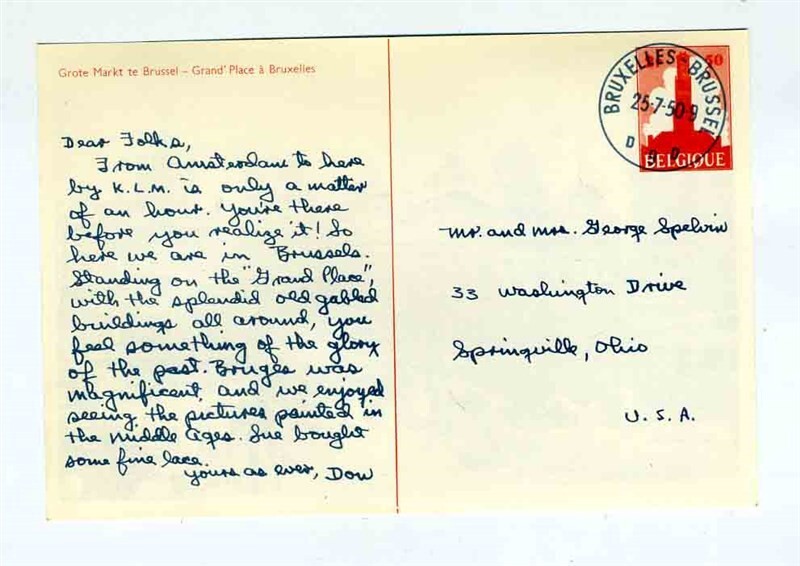 Grote Markt te Brussel – Grand' Place à Bruxelles
Dear Folks,
From Amsterdam to here
by K.L.M. is only a matter
of an hour. You're there
before you realize it! So
here we are in Brussels.
Standing on the "Grand Place",
with the splendid old gabled
buildings all around, you
feel something of the glory
of the past. Bruges was
magnificent, and we enjoyed
seeing the pictures painted in
the Middle Ages. Sue bought
some fine lace.
Yours as ever, Dow
BRUXELLES-BRUSSEL
25-7-50-9
D D
50
BELGIQUE
Mr. and Mrs. George Spelvin
33 Washington Drive
Springville, Ohio
U.S.A.